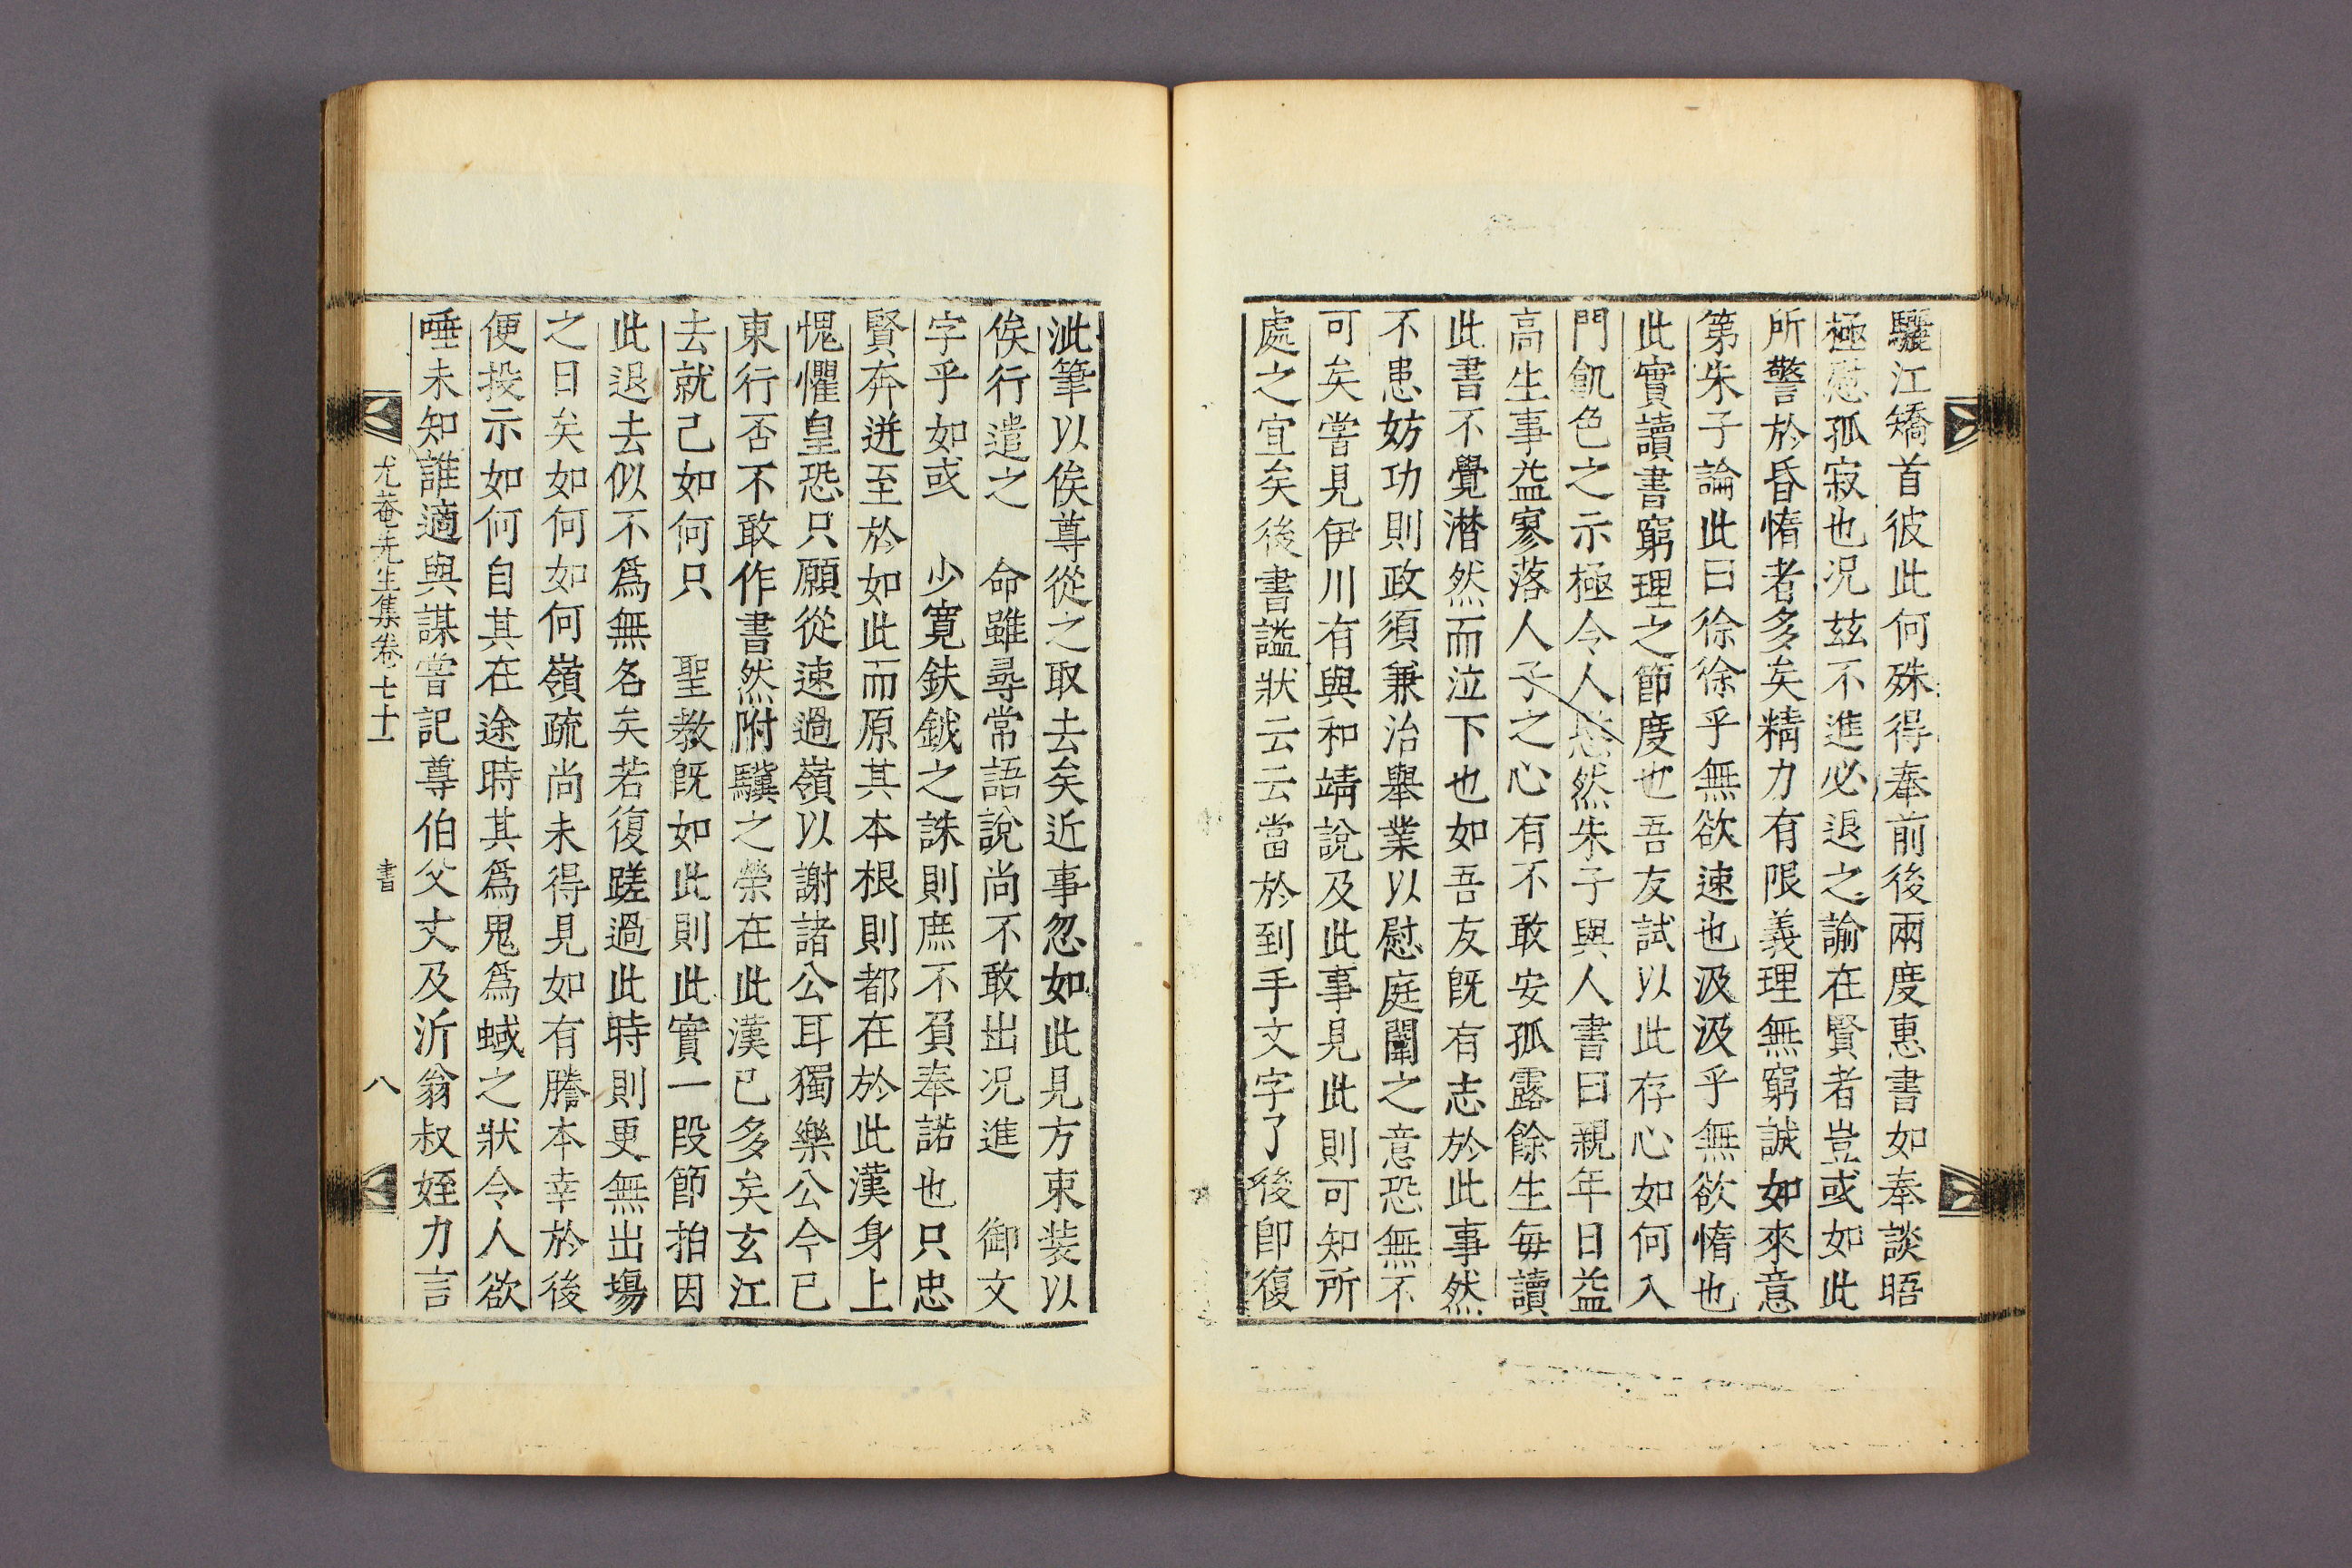 驪江矯首彼此何殊得奉前後兩度惠書如奉談晤
極慰孤寂也况玆不進必退之諭在賢者豈或如此
所警於昏惰者多矣精力有限義理無窮誠如來意
第朱子論此曰徐徐乎無欲速也汲汲乎無欲惰也
此實讀書窮理之節度也吾友試以此存心如何入
門飢色之示極令人 然朱子與人書曰親年日益
高生事益寥落人子之心有不敢安孤露餘生每讀
此書不覺潸然而泣下也如吾友旣有志於此事然
不患妨功則政須兼治擧業以慰庭闈之意恐無不
可矣嘗見伊川有與和靖說及此事見此則可知所
處之宜矣後書謚狀云云當於到手文字了後卽復
泚筆以俟尊從之取去矣近事忽如此見方束裝以
俟行遣之 命雖尋常語說尚不敢出况進 御文
字乎如或 少寬鈇鉞之誅則庶不負奉諾也只忠
賢奔迸至於如此而原其本根則都在於此漢身上
愧懼皇恐只願從速過嶺以謝諸公耳獨樂公今已
東行否不敢作書然附驥之榮在此漢已多矣玄江
去就已如何只 聖教旣如此則此實一段節拍因
此退去似不爲無名矣若復蹉過此時則更無出場
之日矣如何如何嶺疏尚未得見如有謄本幸於後
便投示如何自其在途時其爲鬼爲蜮之狀令人欲
唾未知誰適與謀嘗記尊伯父丈及沂翁叔姪力言
尤菴先生集卷七十一 書 八